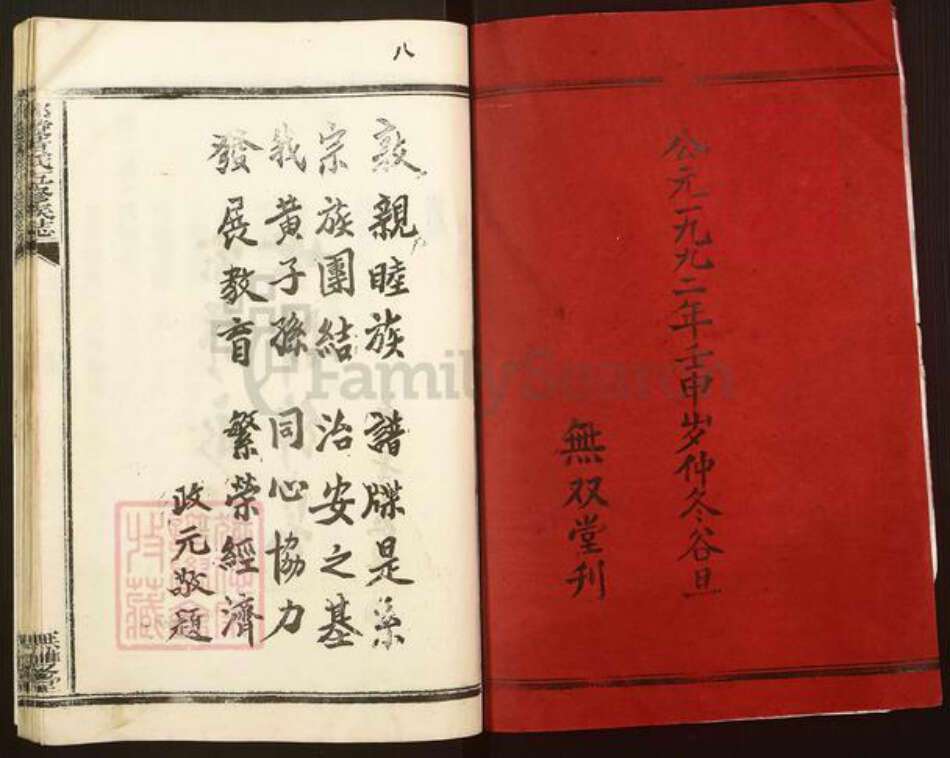 公元一九九二年壬申岁仲冬谷旦
無双堂刊
八
敦親睦族 譜牒是系
宗族團結 治安之基
我黄子孫 同心協力
發展教育 繁荣經濟
政元敬題
氏五修族誌
無雙堂
特藏
FamilySearch